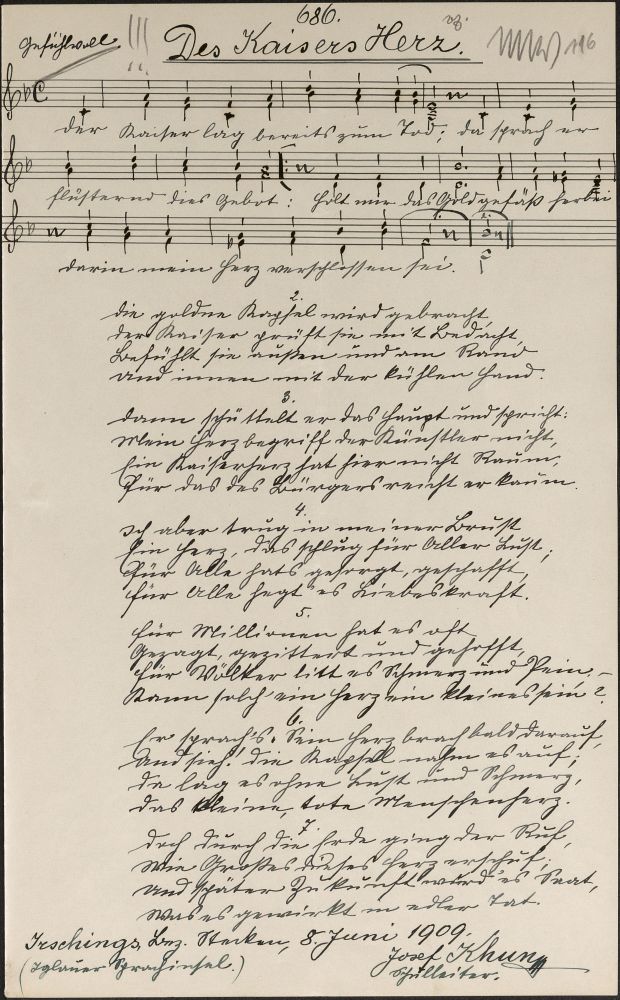 686.
Gefühlvoll.
Des Kaisers Herz.
196
Der Kaiser lag bereits zum Tod; da sprach er
flüsternd dies Gebot: Holt mir das Goldgefäß herbei
darin mein Herz verschlossen sei.
2.
Die goldne Kapsel wird gebracht,
Der Kaiser prüft sie mit Bedacht,
Befühlt sie außen und am Rand
Und innen mit der kühlen Hand.
3.
Dann schüttelt er das Haupt und spricht:
Mein Herz begriff der Künstler nicht,
Ein Kaiserherz hat hier nicht Raum,
Für das des Bürgers reicht er kaum.
4.
Ich aber trug in meiner Brust
Ein Herz, das schlug für Aller Lust;
Für Alle hats gesorgt, geschafft,
Für Alle hegt' es Liebeskraft.
5.
Für Millionen hat es oft
Gezagt, gezittert und gehofft,
Für Völker litt es Schmerz und Pein, –
Kann solch' ein Herz ein kleines sein?
6.
Er sprach's. Sein Herz brach bald darauf,
Und sieh! die Kapsel nahm es auf;
Da lag es ohne Lust und Schmerz,
Das kleine, tote Menschenherz.
7.
Doch durch die Erde ging der Ruf,
Wie Großes dieses Herz erschuf;
Und später Zukunft wird es Saat,
Was es gewirkt in edler Tat.
Irschings, Bez. Stecken, 8. Juni 1909.
(Iglauer Sprachinsel.)
Josef Khun
Schulleiter.